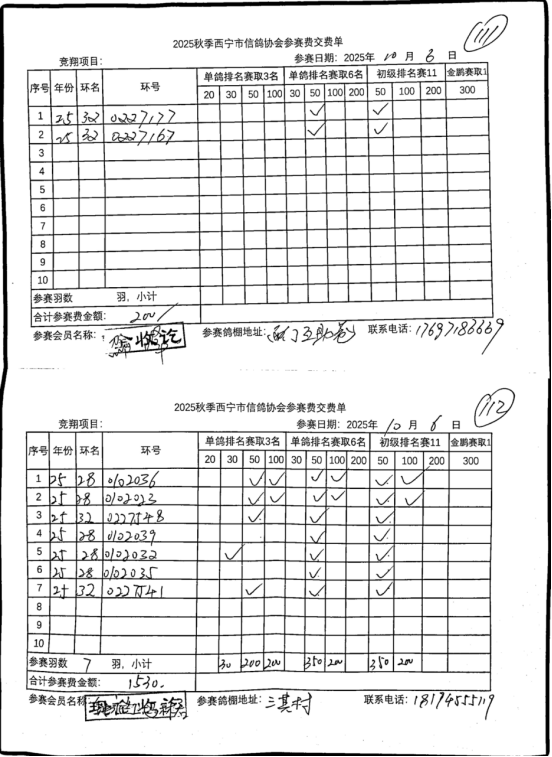 111
2025秋季西宁市信鸽协会参赛费交费单
竞翔项目: 参赛日期: 2025年 10 月 6 日
序号 年份 环名 环号 单鸽排名赛取3名 单鸽排名赛取6名 初级排名赛11 金鹏赛取1
20 30 50 100 30 50 100 200 50 100 200 300
1 25 32 0227177 ✓ ✓
2 25 32 0227167 ✓ ✓
3
4
5
6
7
8
9
10
参赛羽数 羽, 小计
合计参赛费金额: 200
参赛会员名称: 参赛鸽棚地址: 联系电话: 17697186669
112
2025秋季西宁市信鸽协会参赛费交费单
竞翔项目: 参赛日期: 2025年 10 月 6 日
序号 年份 环名 环号 单鸽排名赛取3名 单鸽排名赛取6名 初级排名赛11 金鹏赛取1
20 30 50 100 30 50 100 200 50 100 200 300
1 25 28 0102036 ✓ ✓ ✓ ✓ ✓ ✓
2 25 28 0102023 ✓ ✓ ✓ ✓ ✓ ✓
3 25 32 0227548 ✓ ✓ ✓
4 25 28 0102039 ✓ ✓
5 25 28 0102032 ✓ ✓ ✓
6 25 28 0102035 ✓ ✓
7 25 32 0227541 ✓ ✓ ✓
8
9
10
参赛羽数 7 羽, 小计 30 200 200 350 200 350 200
合计参赛费金额: 1530.
参赛会员名称 参赛鸽棚地址: 三其村 联系电话: 18194555119